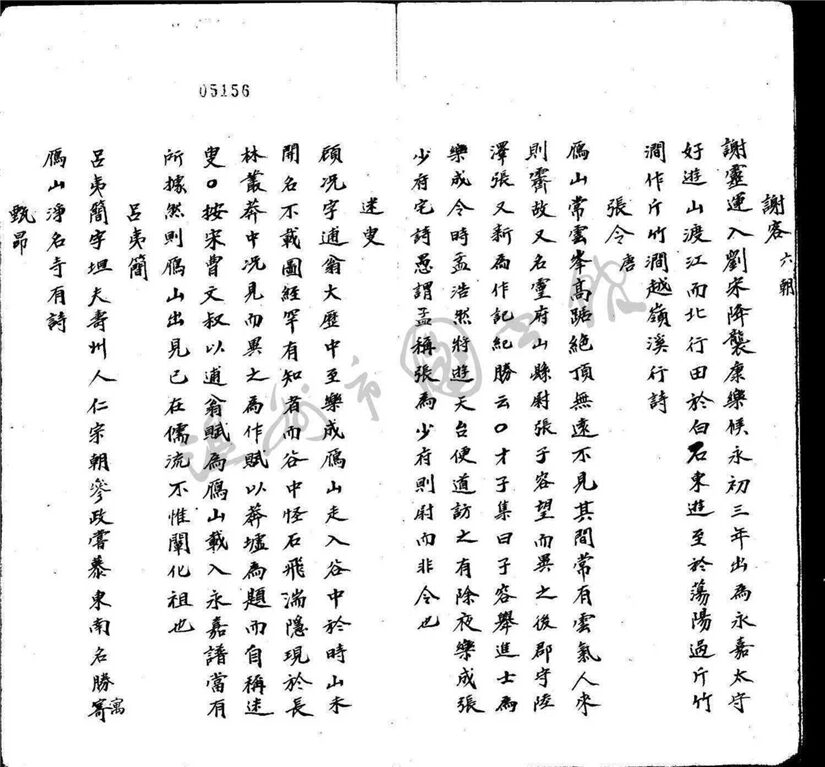 05156
謝客 六朝
謝靈運入劉宋降襲康樂候永初三年出為永嘉太守
好遊山渡江而北行田於白石東遊至於蕩陽過斤竹
澗作斤竹澗越嶺溪行詩
張令 唐
鴈山常雲峯高踞絕頂無遠不見其間常有雲氣人來
則霽故又名靈府山縣尉張子容望而異之後郡守陸
澤張又新為作記紀勝云○才子集曰子容舉進士為
樂成令時孟浩然將遊天台便道訪之有除夜樂成張
少府宅詩愚謂孟稱張為少府則尉而非令也
迷叟
顧况字逋翁大歷中至樂成鴈山走入谷中於時山未
開名不載圖經罕有知者而谷中怪石飛湍隱現於長
林叢莽中况見而異之為作賦以莽墟為題而自稱迷
叟○按宋曹文叔以逋翁賦為鴈山載入永嘉譜當有
所據然則鴈山出見已在儒流不惟闡化祖也
呂夷簡
呂夷簡字坦夫壽州人仁宗朝叅政嘗慕東南名勝寄寓
鴈山淨名寺有詩
甄昂
溫州市圖書館